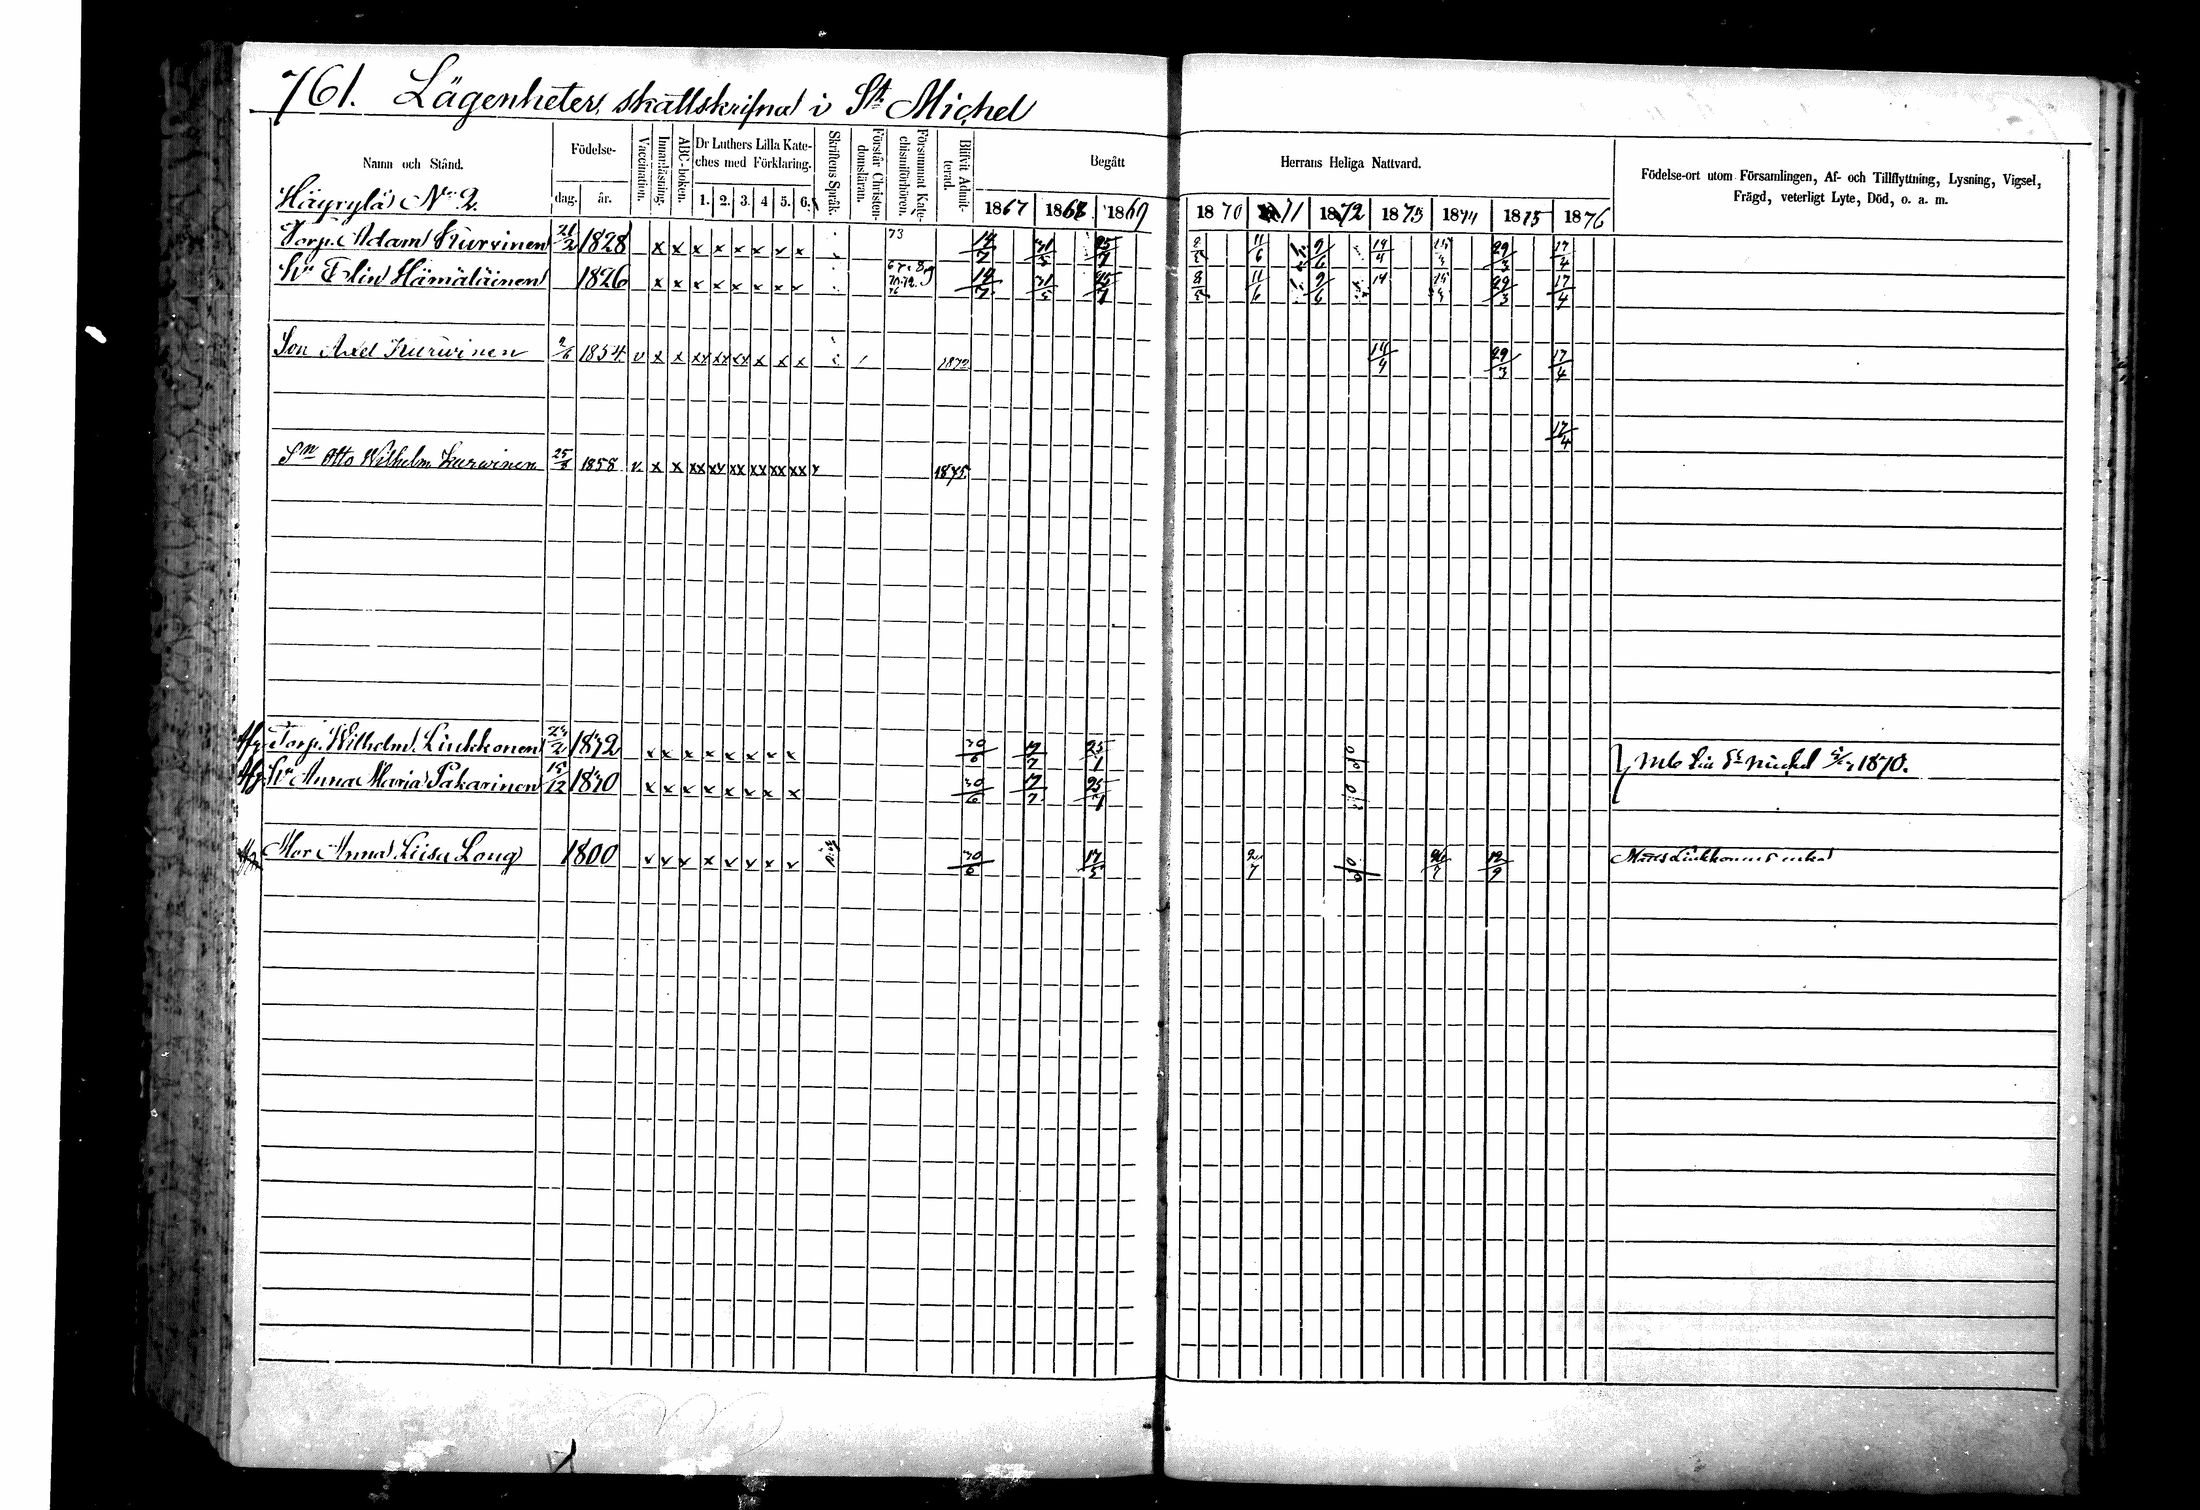 761. Lägenheter, skattskrifna i St. Michel
Namn och Stånd.
Födelse-
dag.
år.
Vaccination.
Innanläsning.
ABC-boken.
Dr Luthers Lilla Kate-
ches med Förklaring.
1. 2. 3. 4 5. 6.
Skriftens Språk.
Förstår Christen-
domsläran.
Försummat Kate-
chismiförhören.
Blifvit Admit-
terad.
Begått
Herrans Heliga Nattvard.
1867 1868 1869 1870 1871 1872 1873 1874 1875 1876
Födelse-ort utom Församlingen, Af- och Tillflyttning, Lysning, Vigsel,
Frägd, veterligt Lyte, Död, o. a. m.
Häyrylä No 2.
Torp. Adam Kurvinen 21/2 1828 x x x x x x x x 73 14/7 31/5 25/7 11/6 9/6 14/4 29/3 17/4
Hu Elin Hämäläinen 1826 x x x x x x x x 14/7 31/5 25/7 11/6 9/6 14 29/3 17/4
Son Axel Kurvinen 1854 v x x xx xx xx x x x 1872 14/4 29/3 17/4
17/4
Sn Otto Wilhelm Kurvinen 25/8 1858 v x x xx xx xx xx xx xx 1875
Afg. Torp. Wilhelm Liukkonen 1842 x x x x x x x x 30/6 17/7 25/1 St Michel 1870.
Afg. Hu Anna Maria Pakarinen 15/12 1840 x x x x x x x x 30/6 17/7 25/1
Mor Anna Liisa Long 1800 30/6 17/5 2/7 26/7 12/9 Liukkonens enka